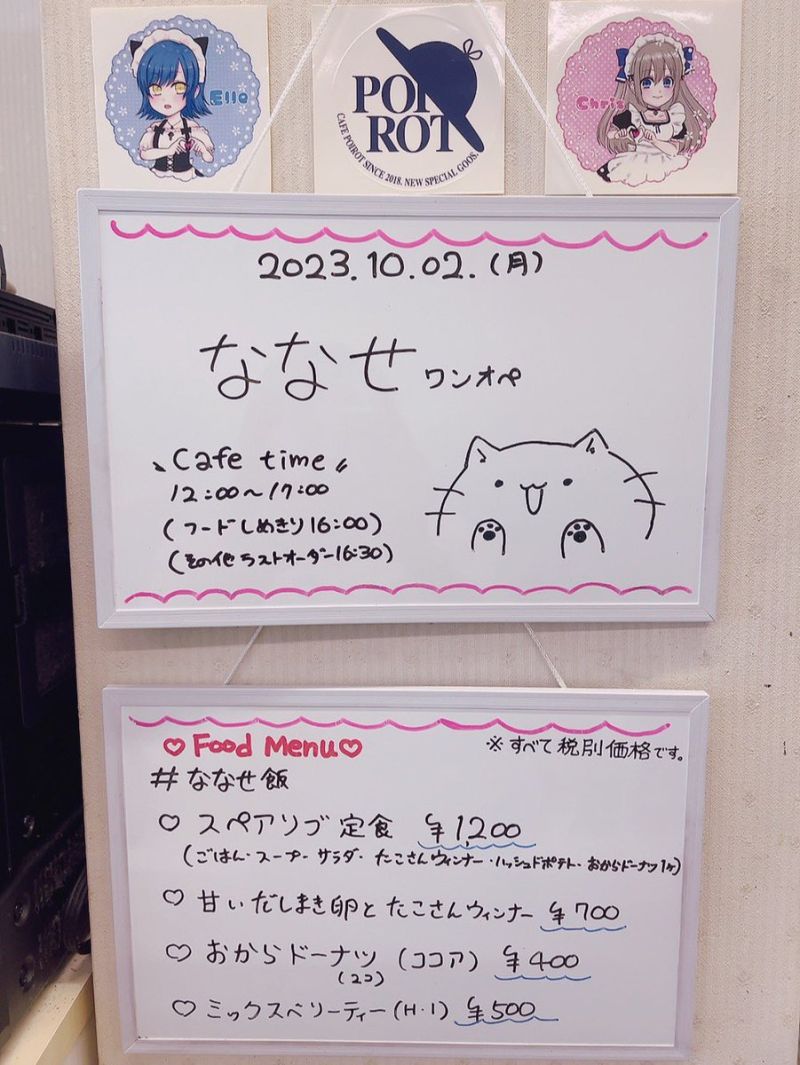 Ello
POIROT
CAFE POIROT SINCE 2018. NEW SPECIAL GOOS.
Chris
2023.10.02.(月)
ななせ ワンオペ
Cafe time
12:00〜17:00
(フードしめきり16:00)
(その他ラストオーダー16:30)
♡Food Menu♡
※すべて税別価格です。
#ななせ飯
♡ スペアリブ定食 ¥1,200
(ごはん・スープ・サラダ・たこさんウィンナー・ハッシュドポテト・おからドーナツ1ヶ)
♡ 甘いだしまき卵とたこさんウィンナー ¥700
♡ おからドーナツ (ココア) ¥400
(2コ)
♡ ミックスベリーティー(H・I) ¥500